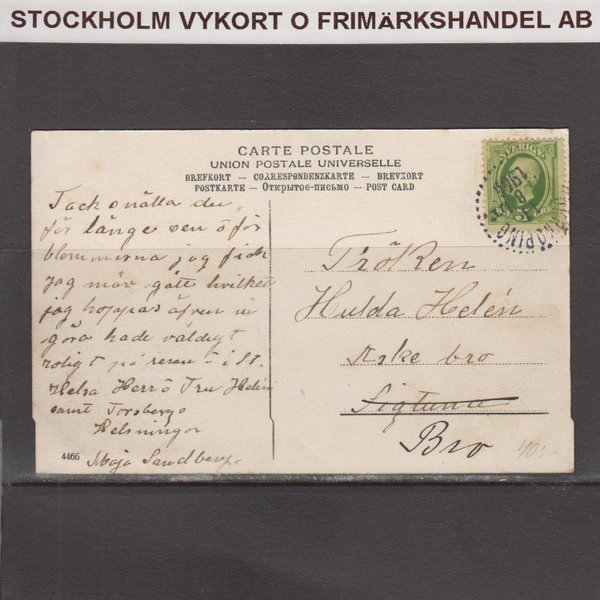 STOCKHOLM VYKORT O FRIMÄRKSHANDEL AB
CARTE POSTALE
UNION POSTALE UNIVERSELLE
BREFKORT – CORRESPONDENZKARTE – BREVKORT
POSTKARTE – Открытое-письмо – POST CARD
SVERIGE
Tack snälla du
för länge sen ö för
blommorna jag fick
jag mår gått hvilket
jag hoppas äfven ni
göra hade väldigt
roligt på resan
Helsa Herr o Fru Helén
samt Torsbergs
Helsningar
Maja Sandberg
4466
Fröken
Hulda Helén
Aske bro
Sigtuna
Bro
40:-